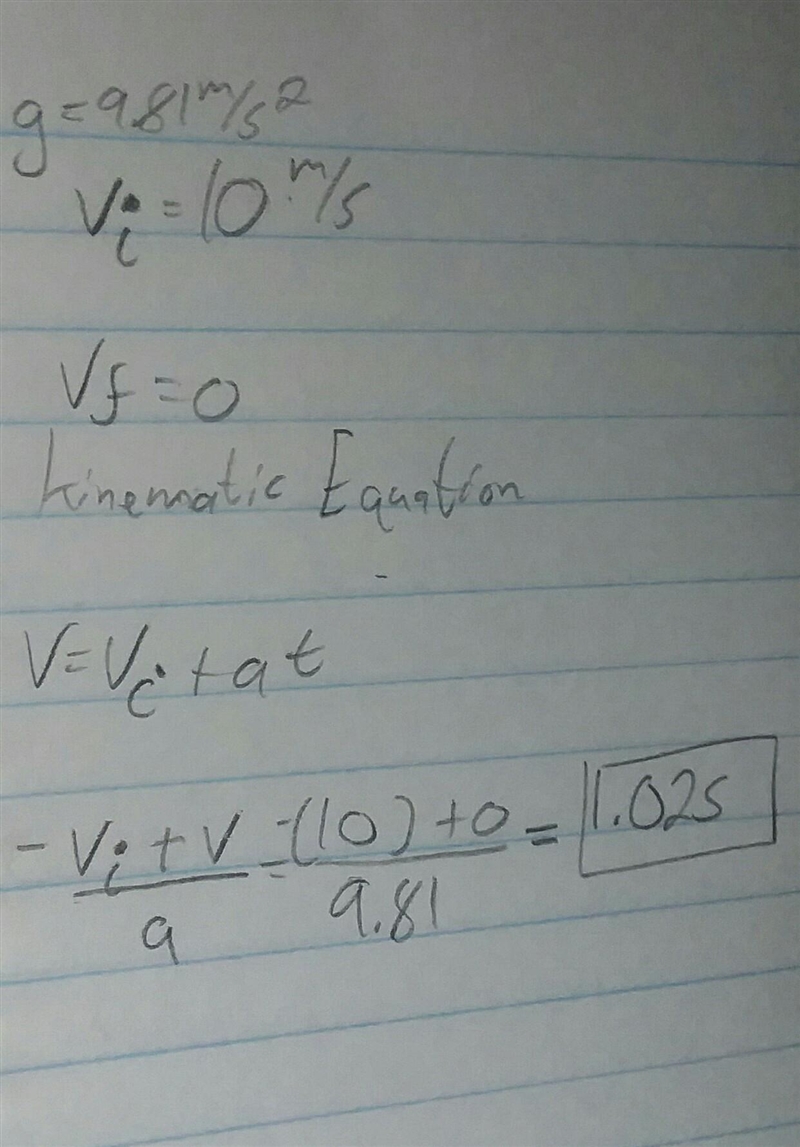 g = 9.81 m/s²
Vi = 10 m/s
Vf = 0
Kinematic Equation
V = Vi + a t
-Vi + V / a = -(10) + 0 / 9.81 = 1.02s